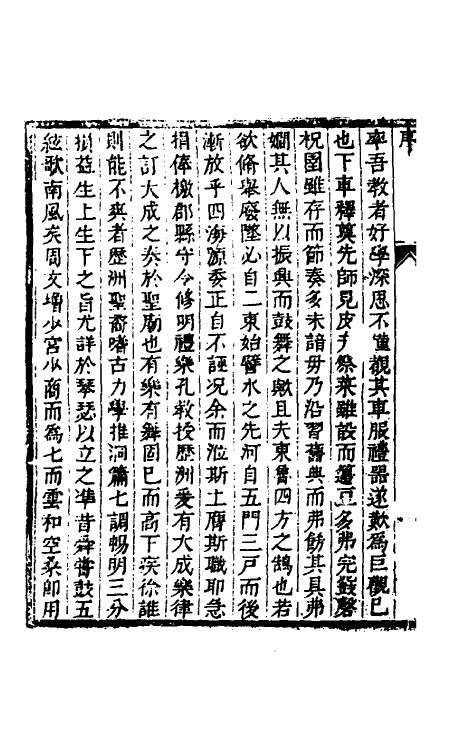 序
率吾教者好學深思不僅觀其車服禮器遂歎為巨觀已
也下車釋奠先師見皮弁祭菜雖設而籩豆多弗完鼗磬
柷圉雖存而節奏多未諳毋乃沿習舊典而弗飭其具弗
嫺其人無以振興而鼓舞之歟且夫東魯四方之鵠也若
欲脩舉廢墜必自二東始譬水之先河自五門三戸而後
漸放乎四海源委正自不誣况余而涖斯土膺斯職耶急
捐俸檄郡縣守令修明禮樂孔教授歷洲爰有大成樂律
之訂大成之奏於聖廟也有樂有舞固已而高下疾徐誰
則能不爽者歷洲聖裔嗜古力學推洞簫七調暢明三分
損益生上生下之旨尤詳於琴瑟以立之準昔舜嘗鼓五
絃歌南風矣周文增少宮少商而為七而雲和空桑即用